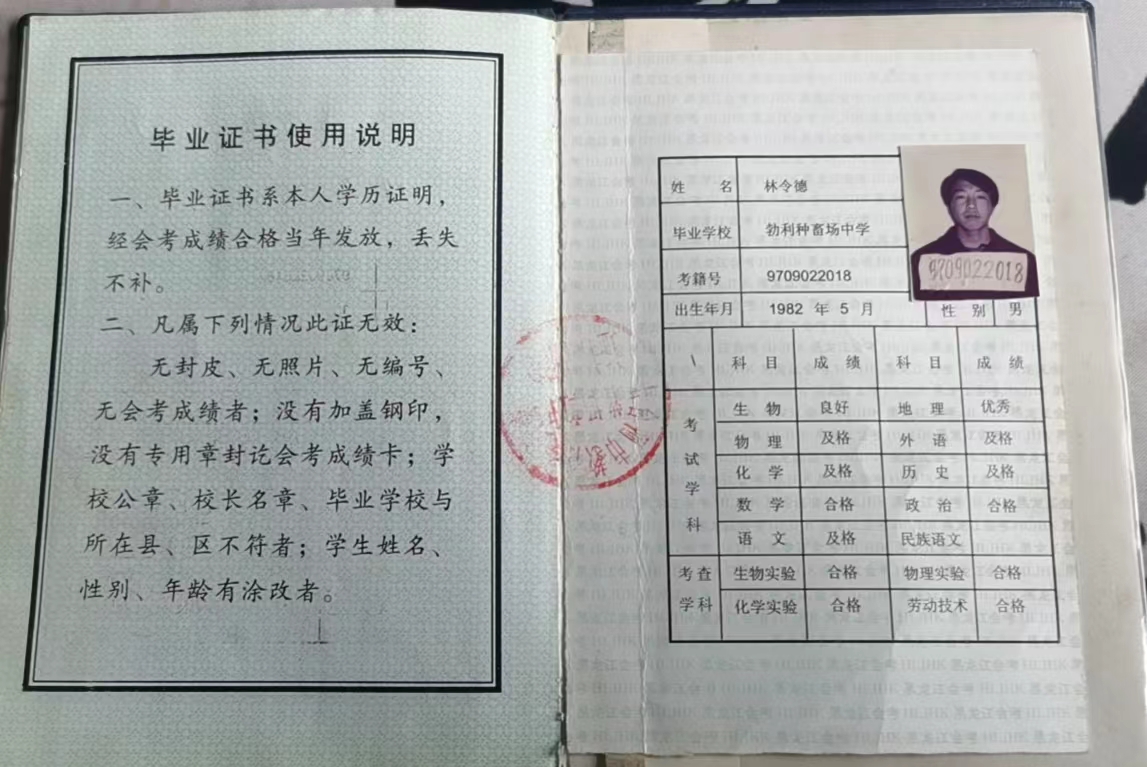 毕业证书使用说明
一、毕业证书系本人学历证明，
经会考成绩合格当年发放，丢失
不补。
二、凡属下列情况此证无效：
无封皮、无照片、无编号、
无会考成绩者；没有加盖钢印，
没有专用章封讫会考成绩卡；学
校公章、校长名章、毕业学校与
所在县、区不符者；学生姓名、
性别、年龄有涂改者。
姓 名 林令德
毕业学校 勃利种畜场中学
考籍号 9709022018
9709022018
出生年月 1982 年 5 月 性 别 男
\ 科 目 成 绩 科 目 成 绩
考试学科
生 物 良好 地 理 优秀
物 理 及格 外 语 及格
化 学 及格 历 史 及格
数 学 合格 政 治 合格
语 文 及格 民族语文
考查学科
生物实验 合格 物理实验 合格
化学实验 合格 劳动技术 合格